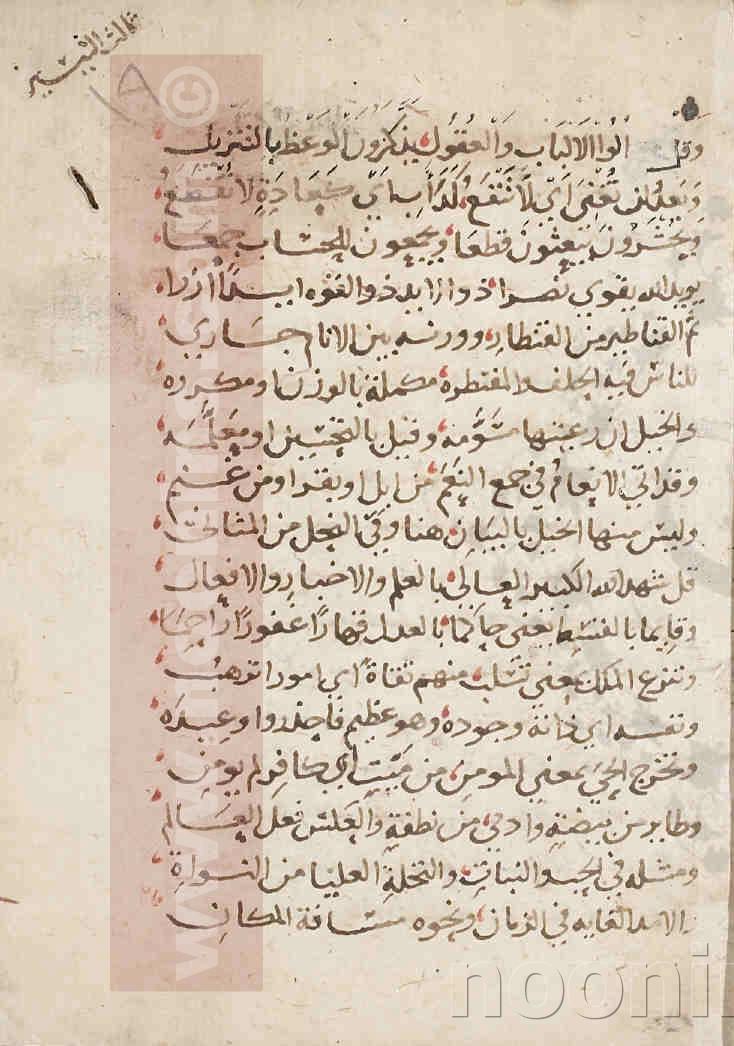 ثالث التيسير
١٨
١
وقل الوا الالباب والعقول يذكرون الوعظ بالتنزيل
وبعد لن تغني اي لا تنفع كداب اي كعادة لا تقطع
ويحشرون يبعثون قطعا ويجمعون للحساب جمعا
يويد الله يقوي نصرا ذوا الايد ذو القوه ايد ازرا
ثم القناطير من القنطار وورنه بين الانام جاري
للناس فيه الخلف المقنطره مكملة بالوزن او مكرره
والخيل ان رعيتها مسومه وقيل بالتحسين او معلمه
وقد اتي الانعام في جمع النعم من ابل او بقر او من غنم
وليس منها الخيل بالبيان هنا وفي النحل من المثاني
قل شهد الله الكبير العالي بالعلم والاخبار والافعال
وقايما بالقسط يعني حاكما بالعدل قهارا غفورا راحما
وتنزع الملك بمعني تسلب منهم تقاة اي امورا ترهب
ونفسه اي ذاته وجوده وهو عظيم فاحذروا وعيده
وتخرج الحي بمعني المومن من ميت اي كافر لم يومن
وطاير من بيضة وادمي من نطفة والعكس فعل العالم
ومثله في الحب والنبات والنخلة العليا من النواة
والامد الغايه في الزمان ونحوه مسافة المكان
www.
©
noonl